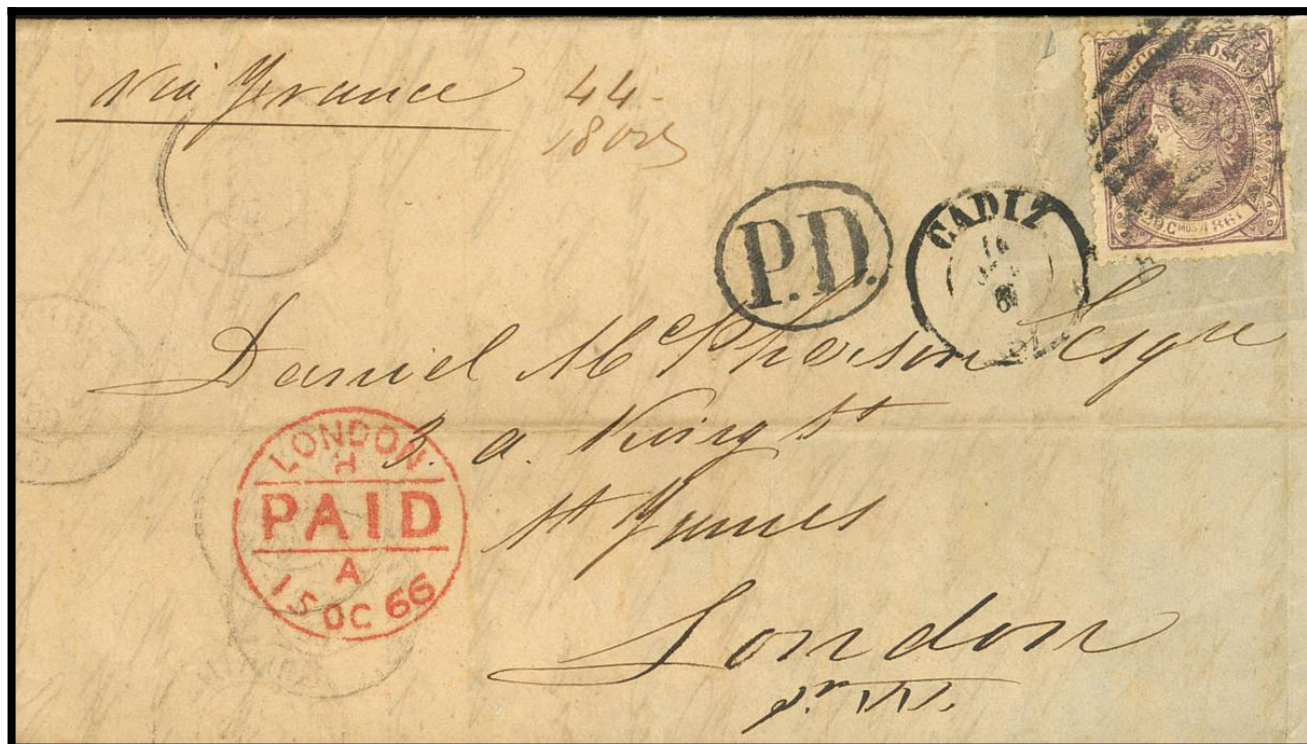 Via France 44
CORREOS
P.D.
CADIZ
Daniel McPherson Esqre
3. a. King St
St James
London
LONDON
H
PAID
A
15 OC 66